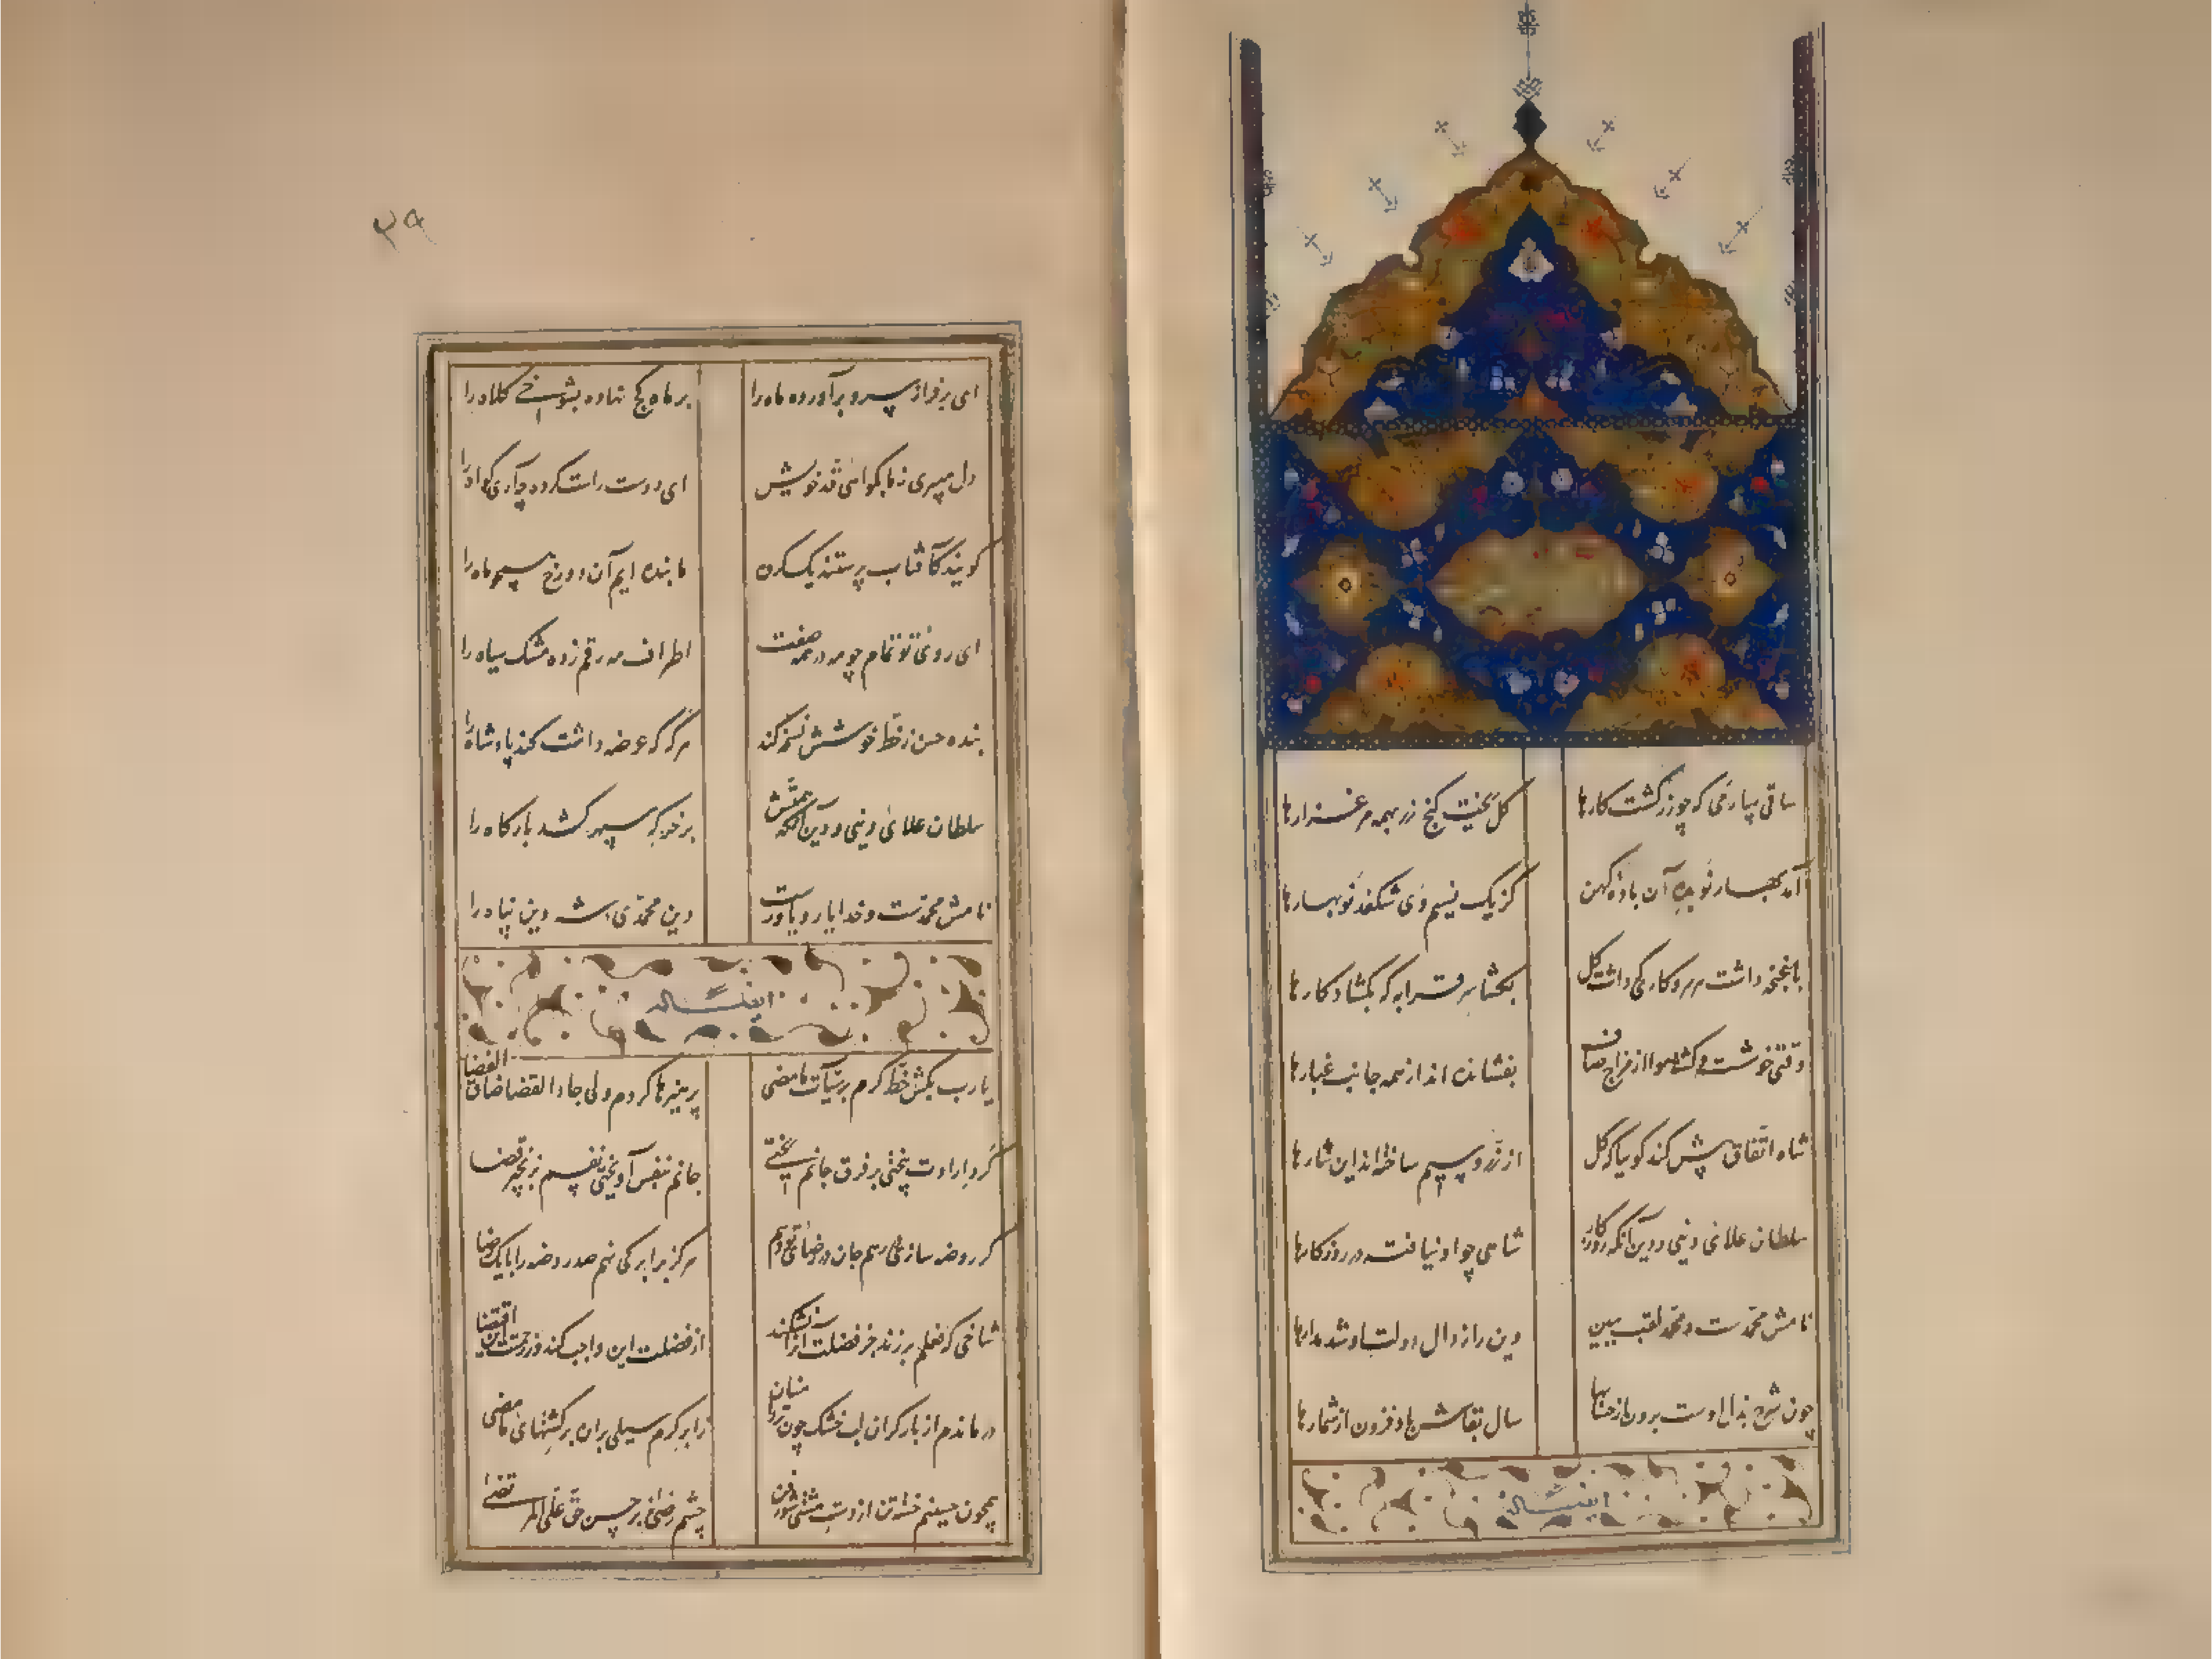 ساقی بیار می که چو زر گشت کارها گل ریخت گنج زر بهمه مرغزارها
آمد بهار نو بده آن باده کهن کز یک نسیم وی شکفد نوبهارها
با غنچه داشت کاری که داشت گل بگشا سر قرابه که بگشاد کارها
وقتی خوشست و گشته هوا از مزاج صاف بفشانده اند از همه جانب غبارها
شاه اتفاق پیش کند گوییا که گل از زر و سیم ساخته اند این نثارها
سلطان علائی دنیی و دین آنکه روزگار شاهی چو او نیافته در روزگارها
نامش محمدست و محمد لقب ببین دین را ز دولت او شد مدارها
چون شرح بذل اوست برون از حسابها سال بقاش باد فزون از شمارها
ایضا له
۲۹
ای بر فراز سرو برآورده ماه را بر ماه کج نهاده بشوخی کلاه را
دل میبری ز ما بگواهی قد خویش ای دوست راست کرده چه آری گواه را
گویند کآفتاب پرستند یک گره ما بنده ایم آن دو رخ همچو ماه را
ای روی تو تمام چو مه در همه صفت اطراف مه رقم زده مشک سیاه را
بنده حسن ز خط خوشش نسخ کند مرگ که عرضه داشت کند پادشاه را
سلطان علائی دنیی و دین آنکه همتش بر خرگه سپهر کشد بارگاه را
نامش محمدست و خدا یار و یاورست دین محمدی شه دین پناه را
ایضا له
یارب بکش خط کرم بر سیئات ما مضی پرهیزها کردم ولی جاء القضا ضاق الفضا
گرد ارادت بیختی بر فرق جانم ریختی جانم بنفس آویختی نفسم بزنجیر قضا
گر روضه سازی مسکنم جان در رضای تو دهم هرگز برابر کی نهم صد روضه را با یک رضا
شاخی که فعلم بر زند جز فضلت آنرا نشکند از فضلت این واجب کند در رحمتت این اقتضا
درماندم از بار گران لب خشک چون ز ابر کرم سیلی بران بر کشتهای ما مضی
همچون حسینم خسته تن از دست مشتی شور و فن چشم رضی بر حسن حق علی المرتضی